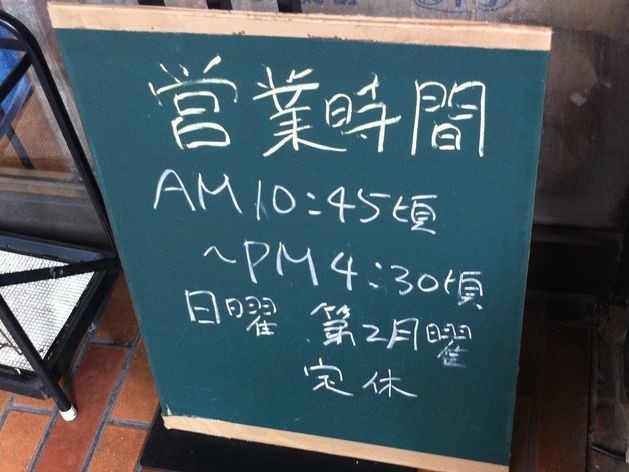 営業時間
AM10:45頃
~PM4:30頃
日曜 第2月曜
定休